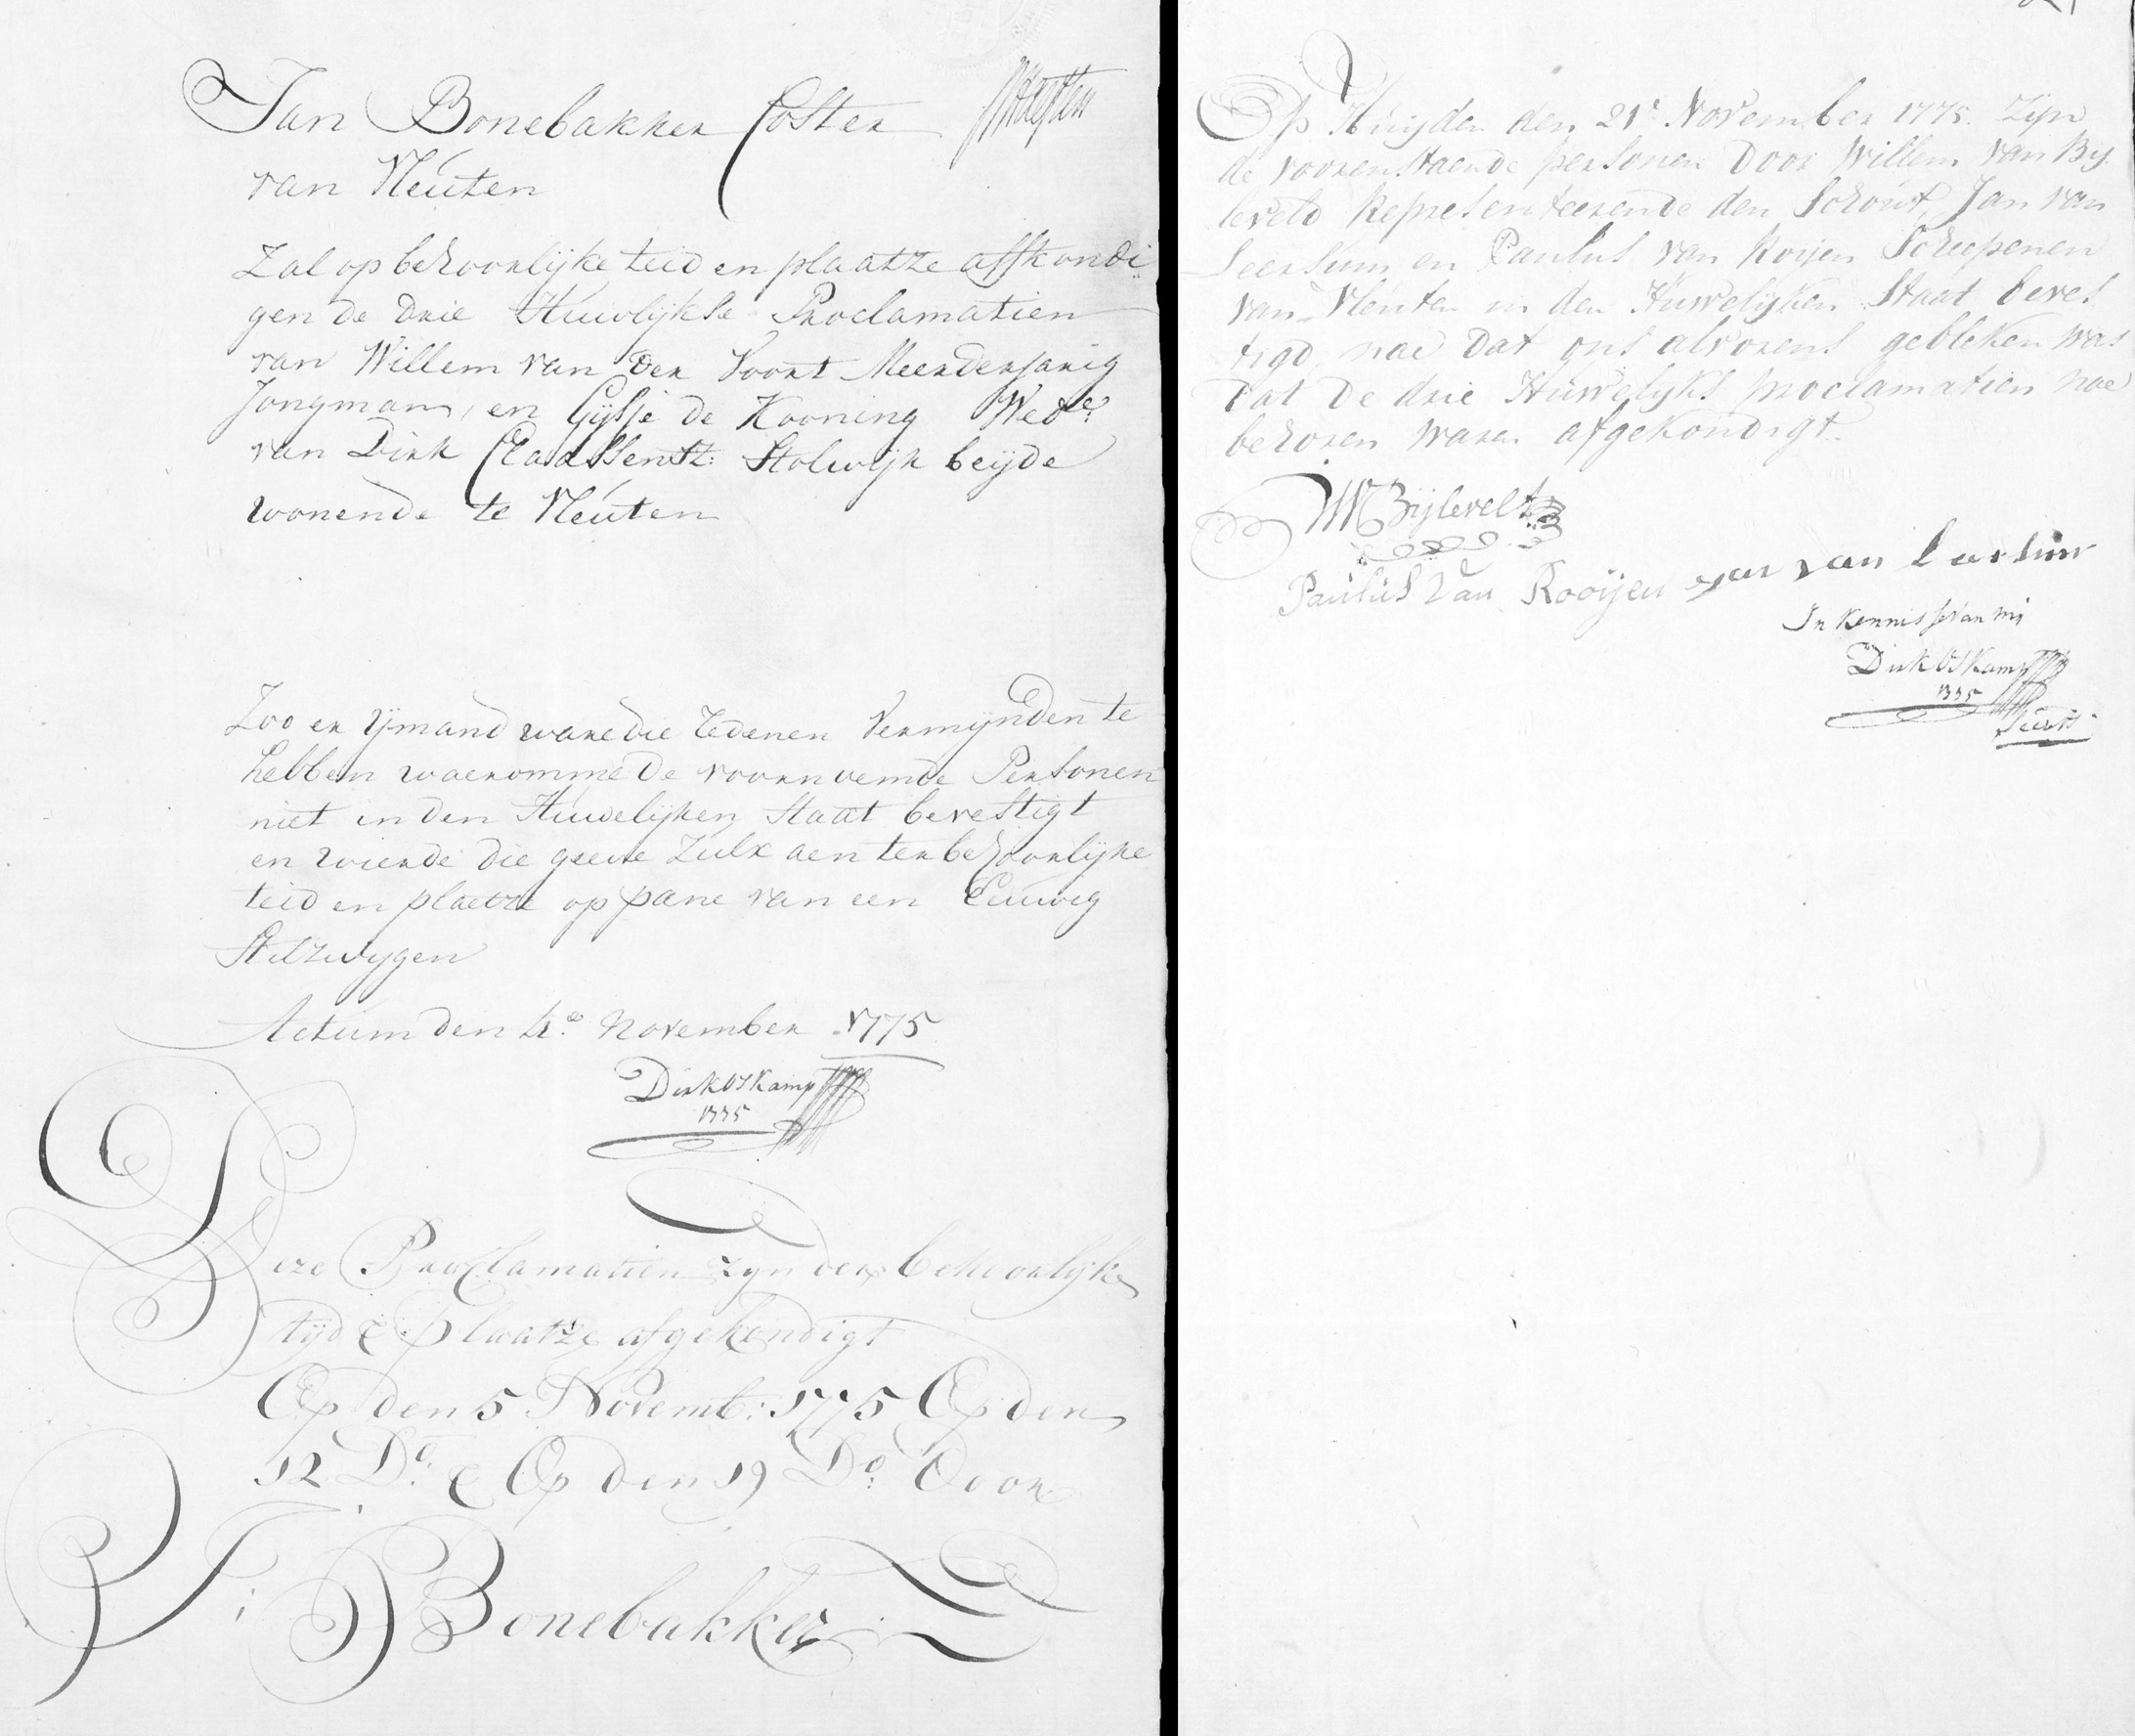 Jan Bonebakker Coster
van Vleuten
Zal op behoorlijke teid en plaatze affkondi
gen de drie Huwlijkse Proclamatien
van Willem van der Voort Meerderjarig
Jongman, en Gijsje de Kooning Wede:
van Dirk Claassensz: Stolwijk beijde
wonende te Vleuten
Zoo er ijmand ware die redenen vermijnden te
hebben waeromme de voornoemde Personen
niet in den Huwelijken Staat bevestigt
en wierde die geeve zulx aen ter behoorlijke
teid en plaetze op pane van een Eeuwig
Stilzwijgen
Actum den 4e November 1775
Dirk Oskamp
1775
Deze Proclamatien zyn der behoorlijke
tijd & plaatze afgekondigt
Op den 5 Novemb: 1775 Op den
12 Do: & Op den 19 Do: Door
J: Bonebakker
Op Huijden den 21e November 1775. Zijn
de voorenstaende personen door Willem van Bij
leveld Representeerende den Schout, Jan van
Leersum en Paulus van Roijen Scheepenen
van Vleuten in den Huwelijken Staat beves
tigd, nae dat ons alvorens gebleken was
dat de drie Huwelijks proclamatien nae
behoren waren afgekondigt.
WVBijlevelt
Paulus Van Rooijen Jan van Leersum
In kennisse van mij
Dirk Oskamp
1775
Secrts.